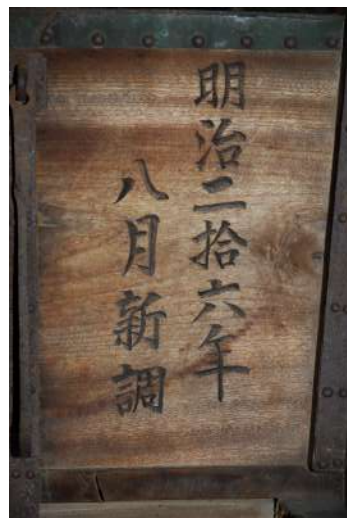 明治二拾六年
八月新調